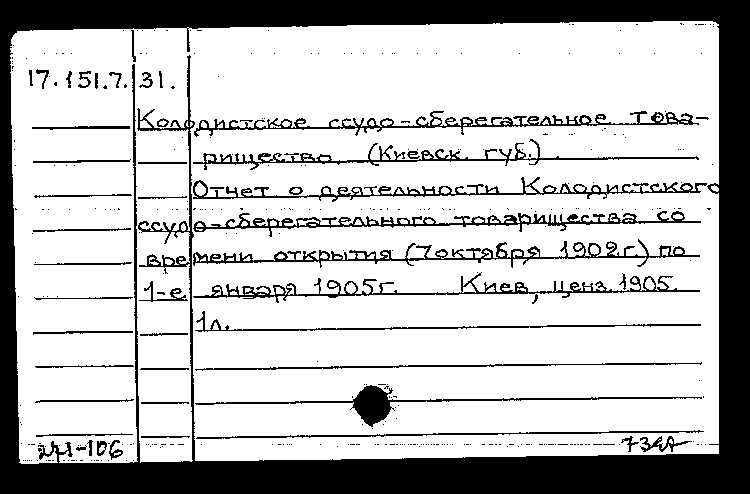 17.151.7.31.
Колодистское ссудо-сберегательное това-
рищество (Киевск. губ.)
Отчет о деятельности Колодистского
ссудо-сберегательного товарищества со
времени открытия (7 октября 1902 г.) по
1-е января 1905 г. Киев, ценз. 1905.
1л.
241-106